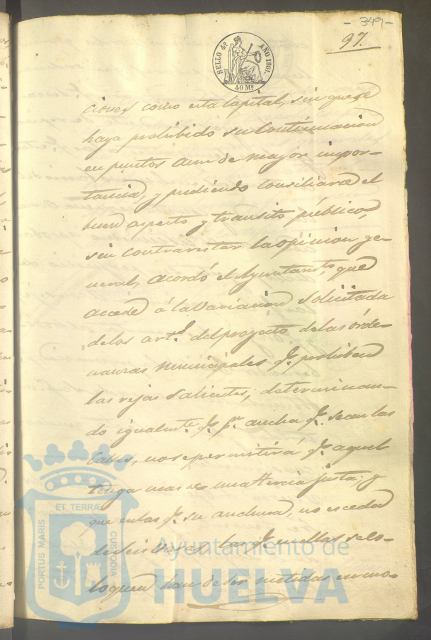 - 349 -
97.
SELLO 4º AÑO 1861.
40 Ms
ciones como esta Capital, sin que se
haya prohibido su Continuacion
en puntos aun de mayor impor-
tancia, y pudiendo consiliarse el
buen aspecto y transito público,
sin contrarestar la opinion ge-
neral, acordó el Ayuntamto. que
accede á la Variacion solicitada
de los arts. del proyecto de las órde-
nanzas Municipales qe. prohiben
las rejas salientes; determinan-
do igualmte. qe. pr. ancha qe. sean las
Calles, no se permitirá qe. aquel
tenga mas de una tercia justa; y
que en las qe. su anchura, no esceda
de seis varas, las qe. en ellas se co-
loquen han de ser metidas en
PORTUS MARIS ET TERRAE CUSTODIA
Ayuntamiento de
HUELVA